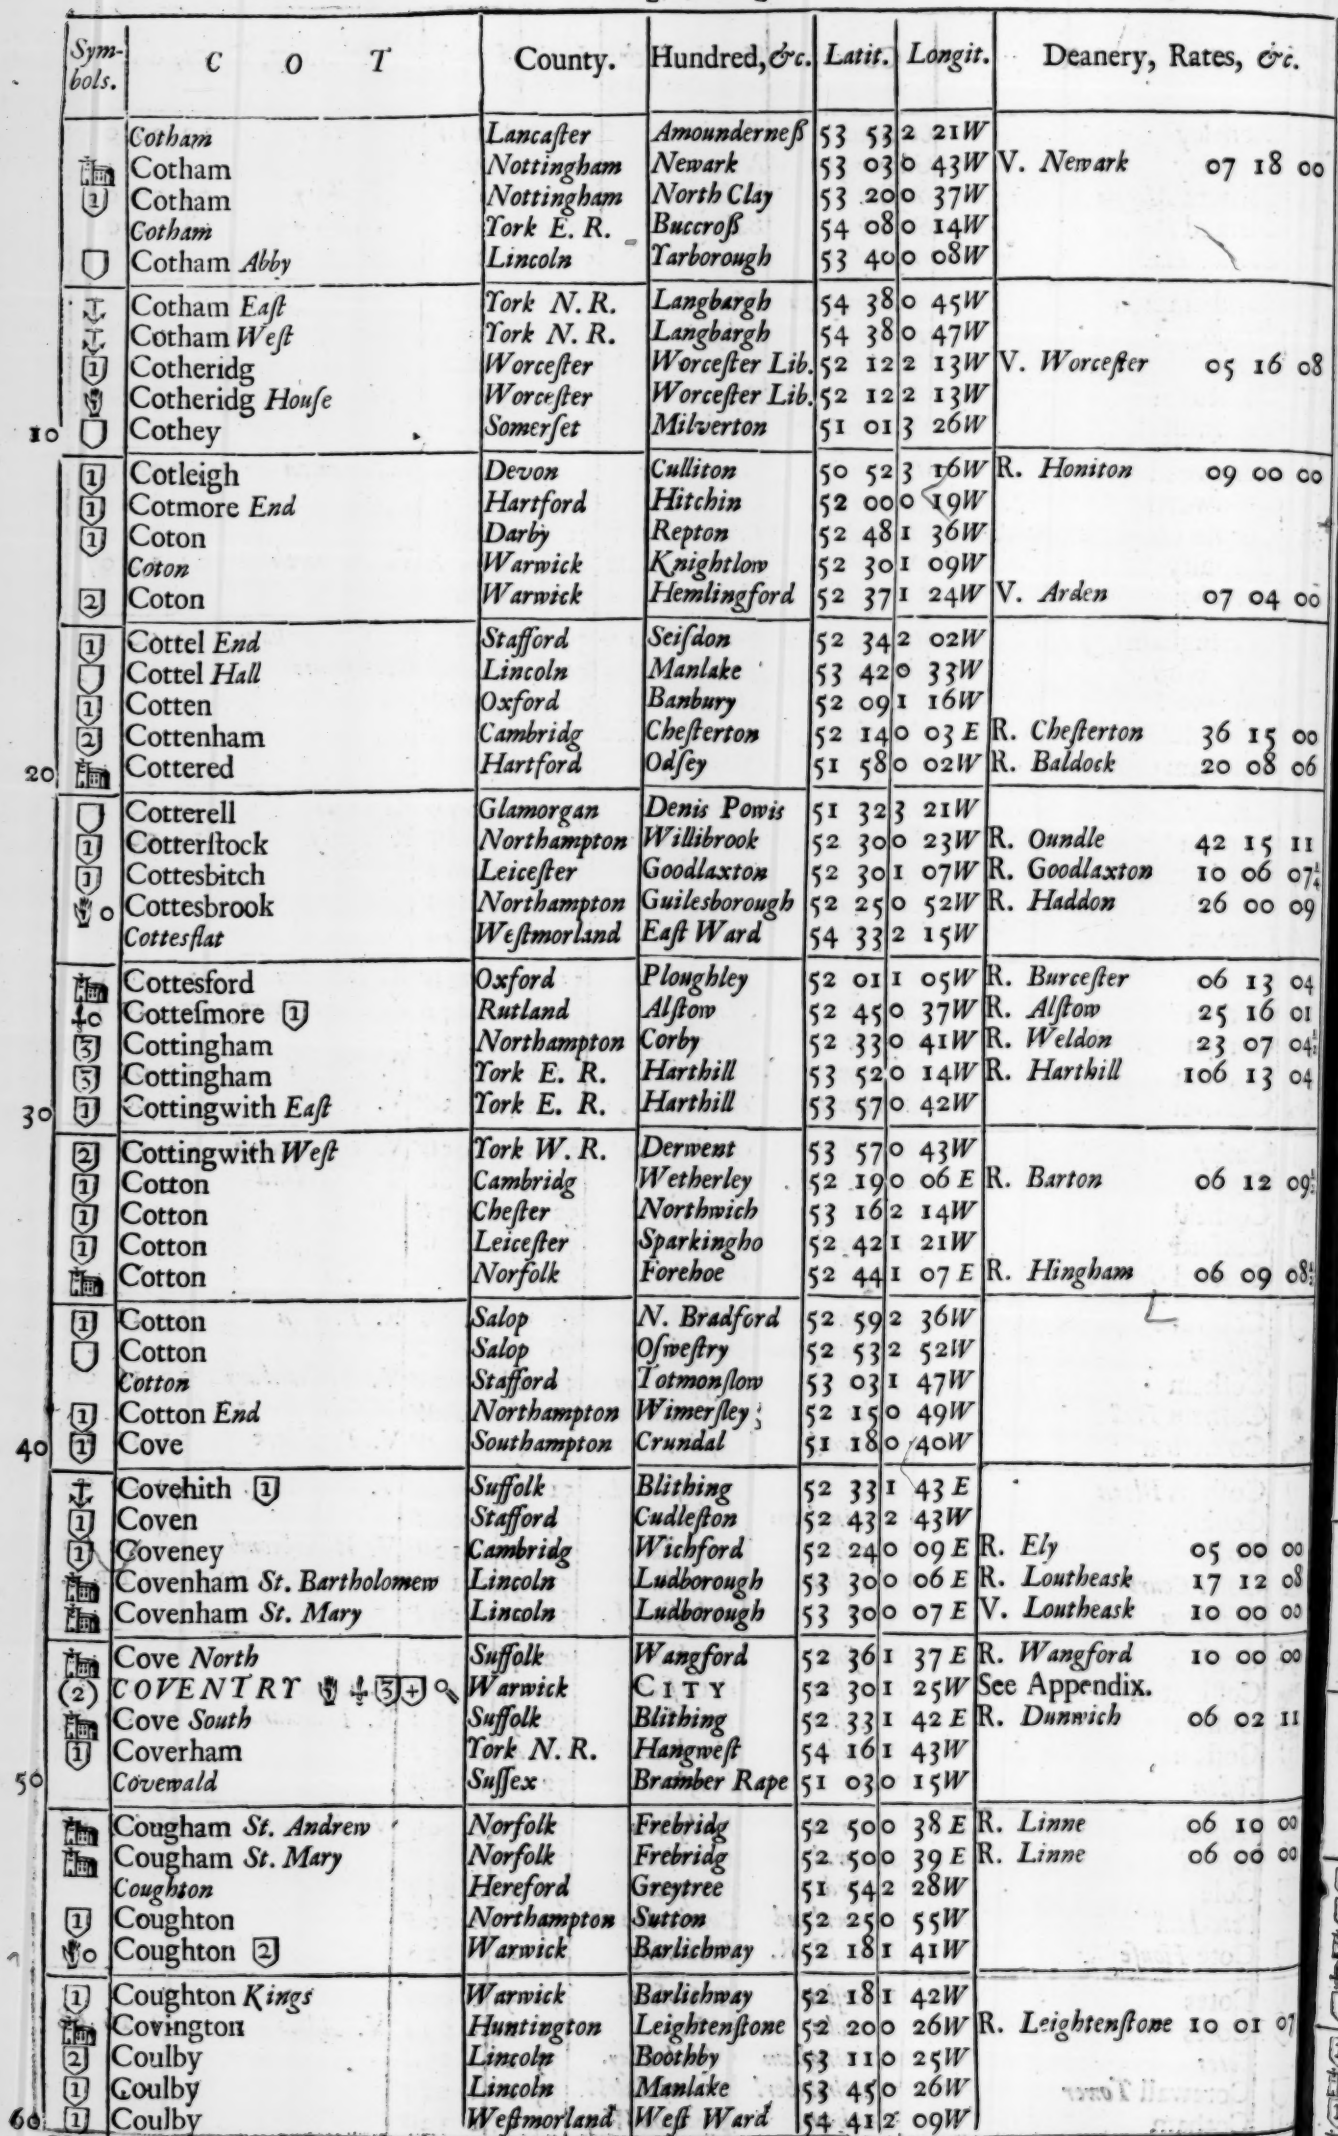 Sym-bols. C O T County. Hundred, &c. Latit. Longit. Deanery, Rates, &c.
Cotham Lancaſter Amounderneß 53 53 2 21W
Cotham Nottingham Newark 53 03 0 43W V. Newark 07 18 00
1 Cotham Nottingham North Clay 53 20 0 37W
Cotham York E. R. Buccroß 54 08 0 14W
Cotham Abby Lincoln Yarborough 53 40 0 08W
Cotham Eaſt York N. R. Langbargh 54 38 0 45W
Cotham Weſt York N. R. Langbargh 54 38 0 47W
1 Cotheridg Worceſter Worceſter Lib. 52 12 2 13W V. Worceſter 05 16 08
Cotheridg Houſe Worceſter Worceſter Lib. 52 12 2 13W
10 Cothey Somerſet Milverton 51 01 3 26W
1 Cotleigh Devon Culliton 50 52 3 16W R. Honiton 09 00 00
1 Cotmore End Hartford Hitchin 52 00 0 19W
1 Coton Darby Repton 52 48 1 36W
Coton Warwick Knightlow 52 30 1 09W
2 Coton Warwick Hemlingford 52 37 1 24W V. Arden 07 04 00
1 Cottel End Stafford Seiſdon 52 34 2 02W
Cottel Hall Lincoln Manlake 53 42 0 33W
1 Cotten Oxford Banbury 52 09 1 16W
2 Cottenham Cambridg Cheſterton 52 14 0 03 E R. Cheſterton 36 15 00
20 Cottered Hartford Odſey 51 58 0 02W R. Baldock 20 08 06
Cotterell Glamorgan Denis Powis 51 32 3 21W
1 Cotterſtock Northampton Willibrook 52 30 0 23W R. Oundle 42 15 11
1 Cottesbitch Leiceſter Goodlaxton 52 30 1 07W R. Goodlaxton 10 06 07¼
Cottesbrook Northampton Guilesborough 52 25 0 52W R. Haddon 26 00 09
Cottesflat Weſtmorland Eaſt Ward 54 33 2 15W
Cottesford Oxford Ploughley 52 01 1 05W R. Burceſter 06 13 04
Cotteſmore 1 Rutland Alſtow 52 45 0 37W R. Alſtow 25 16 01
3 Cottingham Northampton Corby 52 33 0 41W R. Weldon 23 07 04½
3 Cottingham York E. R. Harthill 53 52 0 14W R. Harthill 106 13 04
30 1 Cottingwith Eaſt York E. R. Harthill 53 57 0 42W
2 Cottingwith Weſt York W. R. Derwent 53 57 0 43W
1 Cotton Cambridg Wetherley 52 19 0 06 E R. Barton 06 12 09½
1 Cotton Cheſter Northwich 53 16 2 14W
1 Cotton Leiceſter Sparkingho 52 42 1 21W
Cotton Norfolk Forehoe 52 44 1 07 E R. Hingham 06 09 08½
1 Cotton Salop N. Bradford 52 59 2 36W
Cotton Salop Oſweſtry 52 53 2 52W
Cotton Stafford Totmonſlow 53 03 1 47W
1 Cotton End Northampton Wimerſley 52 15 0 49W
40 1 Cove Southampton Crundal 51 18 0 40W
Covehith 1 Suffolk Blithing 52 33 1 43 E
1 Coven Stafford Cudleſton 52 43 2 43W
1 Coveney Cambridg Wichford 52 24 0 09 E R. Ely 05 00 00
Covenham St. Bartholomew Lincoln Ludborough 53 30 0 06 E R. Loutheask 17 12 08
Covenham St. Mary Lincoln Ludborough 53 30 0 07 E V. Loutheask 10 00 00
Cove North Suffolk Wangford 52 36 1 37 E R. Wangford 10 00 00
(2) COVENTRY 3 + Warwick CITY 52 30 1 25W See Appendix.
Cove South Suffolk Blithing 52 33 1 42 E R. Dunwich 06 02 11
1 Coverham York N. R. Hangweſt 54 16 1 43W
50 Covewald Suſſex Bramber Rape 51 03 0 15W
Cougham St. Andrew Norfolk Frebridg 52 50 0 38 E R. Linne 06 10 00
Cougham St. Mary Norfolk Frebridg 52 50 0 39 E R. Linne 06 00 00
Coughton Hereford Greytree 51 54 2 28W
1 Coughton Northampton Sutton 52 25 0 55W
Coughton 2 Warwick Barlichway 52 18 1 41W
1 Coughton Kings Warwick Barlichway 52 18 1 42W
Covington Huntington Leightenſtone 52 20 0 26W R. Leightenſtone 10 01 07
2 Coulby Lincoln Boothby 53 11 0 25W
1 Coulby Lincoln Manlake 53 45 0 26W
60 1 Coulby Weſtmorland Weſt Ward 54 41 2 09W